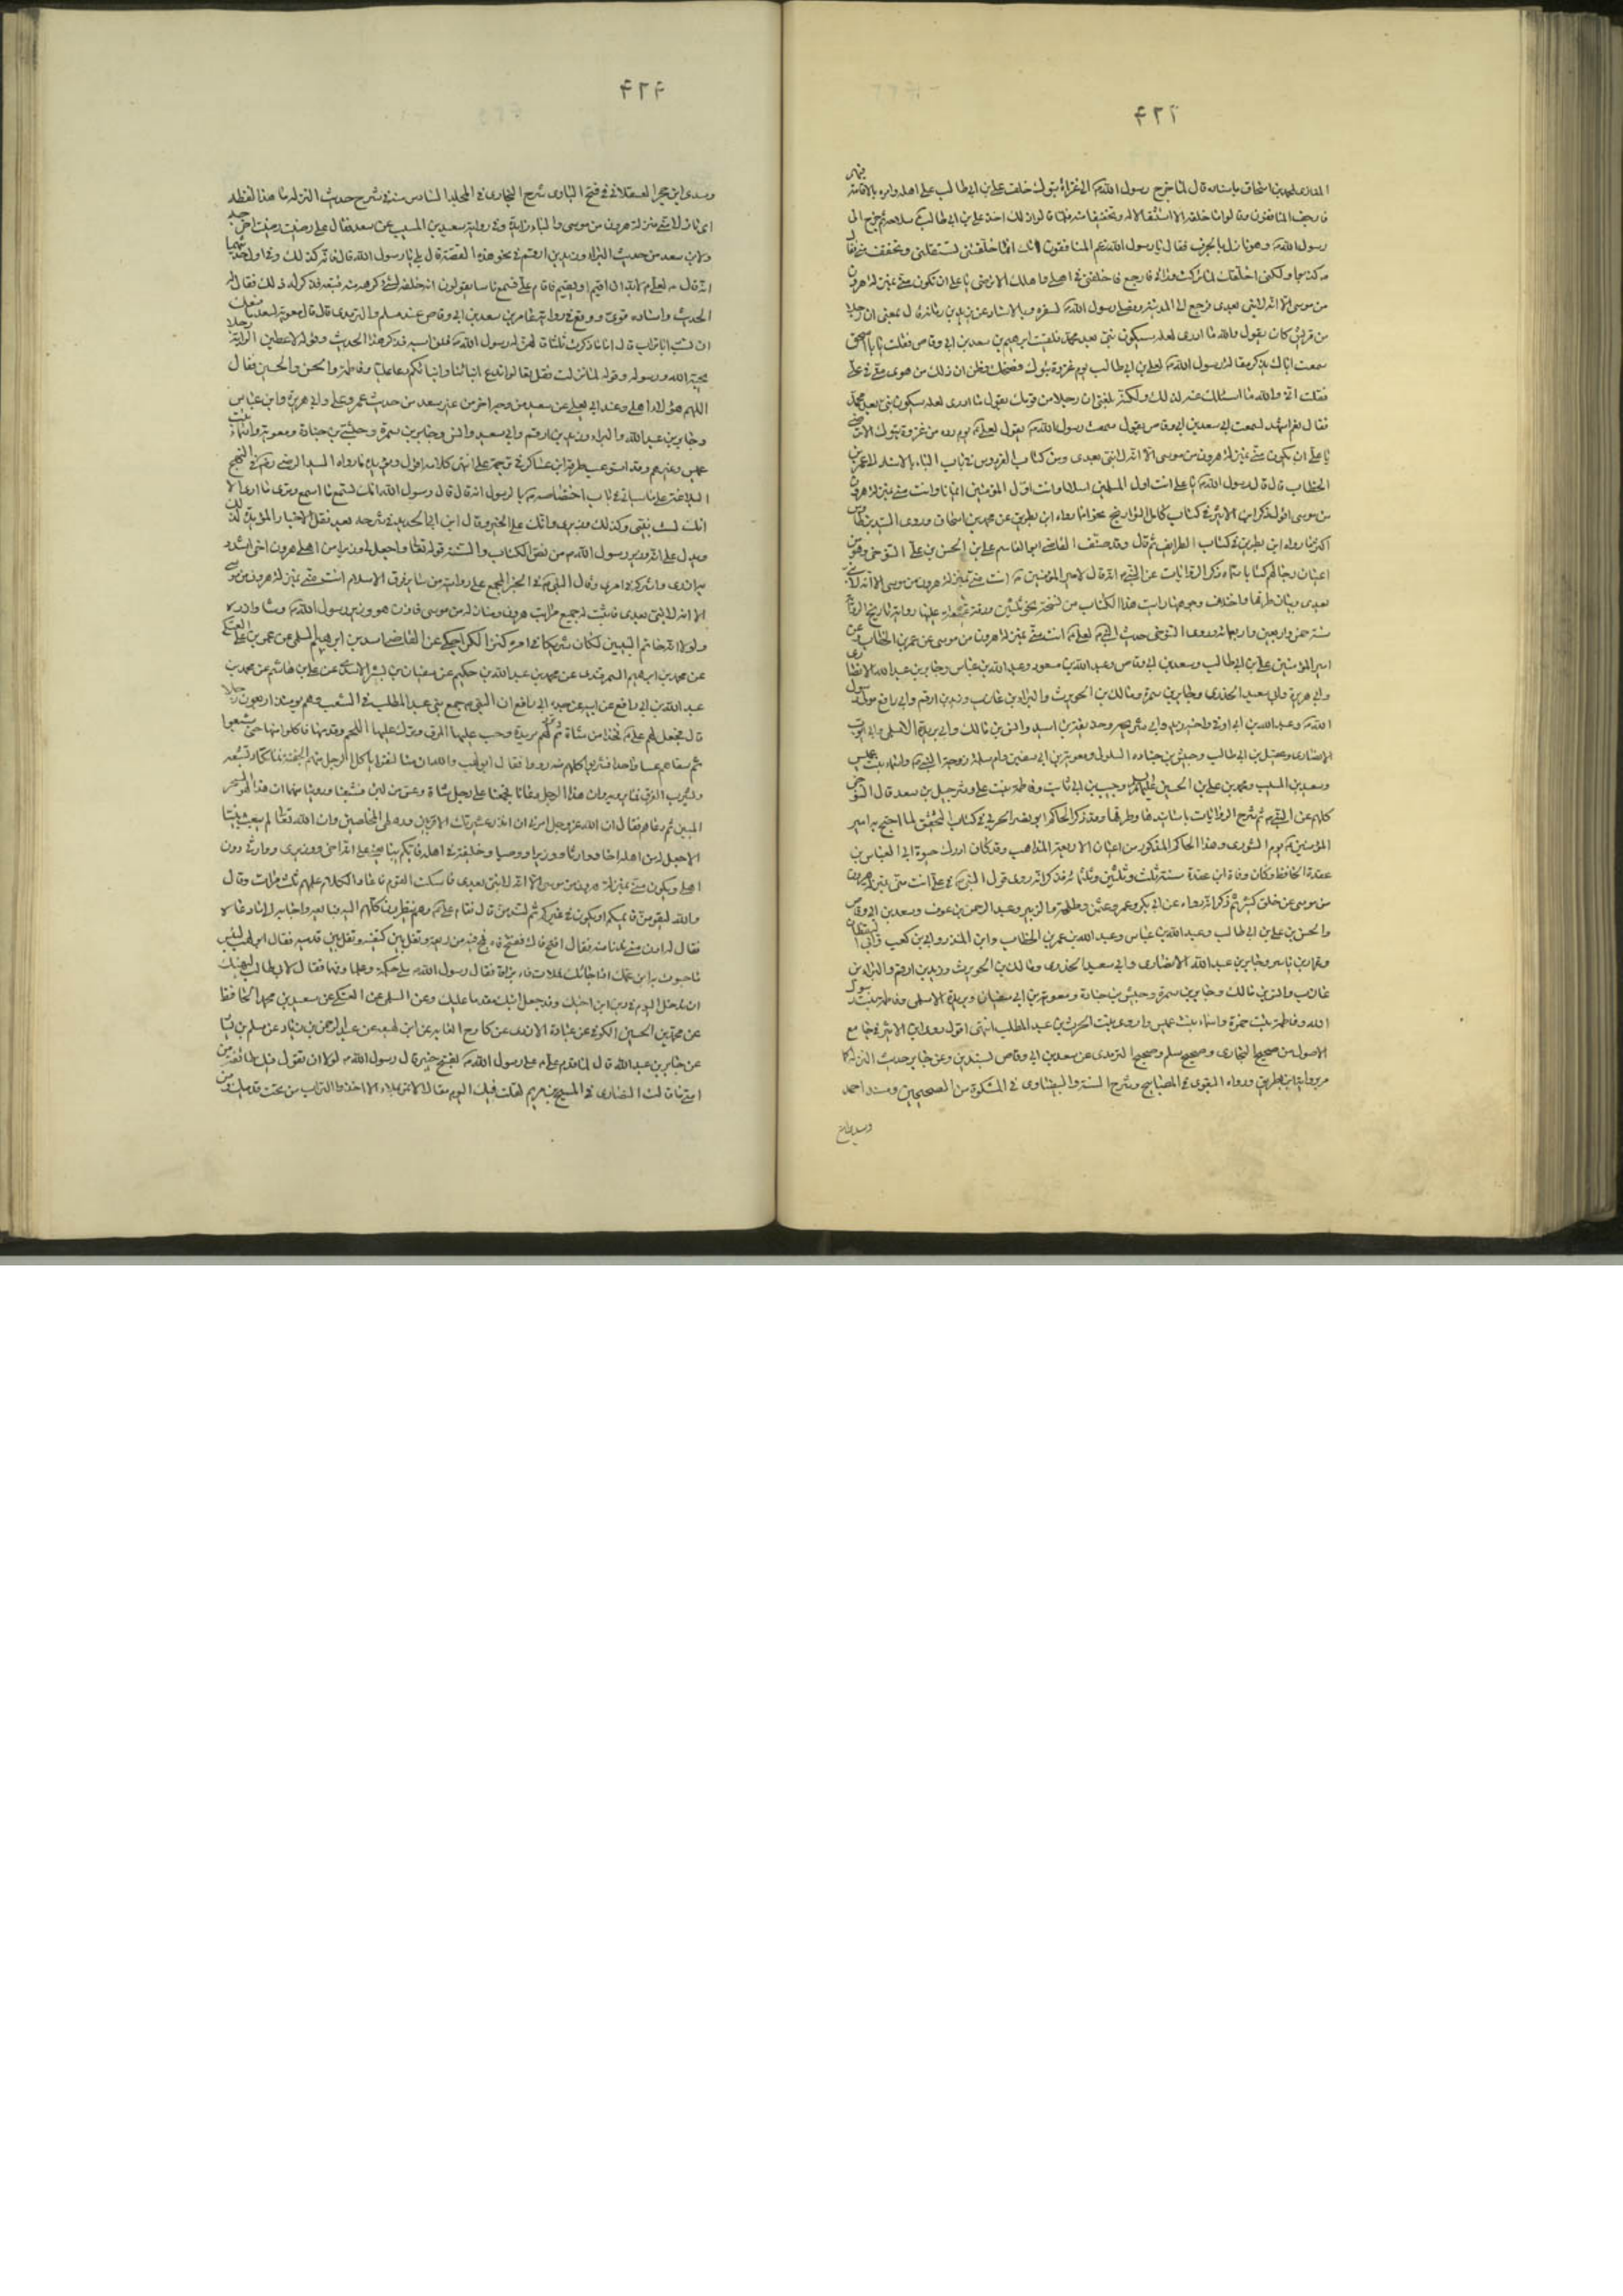 ۴۲۳
المغازى لمحمد بن اسحاق باسناده قال لما خرج رسول الله الى غزاة تبوك خلف على بن ابى طالب على اهله وامره بالاقامة فيهم
فارجف المنافقون وقالوا ما خلفه الا استثقالا له وتخففا منه فلما قالوا ذلك اخذ على بن ابى طالب سلاحه ثم خرج الى
رسول الله وهو نازل بالجرف فقال يا رسول الله زعم المنافقون انك انما خلفتنى تستثقلنى وتخفف منى فقال
كذبوا ولكنى خلفتك لما تركت ورائى فارجع فاخلفنى فى اهلى واهلك الا ترضى يا على ان تكون منى بمنزلة هرون
من موسى الا انه لا نبى بعدى فرجع الى المدينة ومضى رسول الله لسفره وبالاسناد عن يزيد بن قال بلغنى ان رجلا
من قريش كان يقول والله ما ادرى لعله سيكون نبى بعد محمد فلقيت ابرهيم بن سعد بن ابى وقاص فقلت يا ابا اسحق
سمعت اباك يذكر مقالة رسول الله لعلى بن ابى طالب يوم غزوة تبوك فضحك وظن ان ذلك من هوى منى فى على
فقلت انى والله ما اسئلك عنه لذلك ولكنه بلغنى ان رجلا من قومك يقول ما ادرى لعله سيكون نبى بعد محمد
فقال نعم اشهد لسمعت ابى سعد بن ابى وقاص يقول سمعت رسول الله يقول لعلى يوم رده من غزوة تبوك الا ترضى
يا على ان تكون منى بمنزلة هرون من موسى الا انه لا نبى بعدى ومن كتاب الفردوس فى باب الياء بالاسناد الى عمر بن
الخطاب قال قال رسول الله يا على انت اول المسلمين اسلاما وانت اول المؤمنين ايمانا وانت منى بمنزلة هرون
من موسى اقول ذكر ابن الاثير فى كتاب كامل التواريخ نحوا مما رواه ابن بطريق عن محمد بن اسحاق وروى السيد بن طاوس
اكثر مما رواه ابن بطريق فى كتاب الطرايف ثم قال وقد صنف القاضى ابو القاسم على بن الحسن بن على التنوخى وهو من
اعيان رجالهم كتابا سماه ذكر الروايات عن النبى انه قال لامير المؤمنين انت منى بمنزلة هرون من موسى الا انه لا نبى
بعدى وبيان طرقها واختلاف وجوهها رايت هذا الكتاب من نسخة نحو ثلثين ورقة عتيقة عليها رواية تاريخ الرواية
سنة خمس واربعين واربعمائة وروى التنوخى حديث النبى لعلى انت منى بمنزلة هرون من موسى عن عمر بن الخطاب وعن
امير المؤمنين على بن ابى طالب وسعد بن ابى وقاص وعبد الله بن مسعود وعبد الله بن عباس وجابر بن عبد الله الانصارى
وابى هريرة وابى سعيد الخدرى وجابر بن سمرة ومالك بن الحويرث والبراء بن عازب وزيد بن ارقم وابى رافع مولى رسول
الله وعبد الله بن ابى اوفى واخيه زيد وابى سريحة وحذيفة بن اسيد وانس بن مالك وابى بريدة الاسلمى وابى ايوب
الانصارى وعقيل بن ابى طالب وحبشى بن جنادة السلولى ومعوية بن ابى سفين وام سلمة زوجة النبى واسماء بنت عميس
وسعيد بن المسيب ومحمد بن على بن الحسين عليهم السلام وحبيب بن ابى ثابت وفاطمة بنت على وشرحبيل بن سعد قال التنوخى
كلهم عن النبى ثم شرح الروايات باسانيدها وطرقها وقد ذكر الحاكم ابو نصر الحربى فى كتاب التحقيق لما احتج به امير
المؤمنين يوم الشورى وهذا الحاكم المذكور من اعيان الاربعة المذاهب وقد كان ادرك حيوة ابى العباس بن
عقدة الحافظ وكان وفاة ابن عقدة سنة ثلث وثلثين وثلثمائة فذكر انه روى قول النبى فى على انت منى بمنزلة هرون
من موسى عن خلق كثير ثم ذكر انه رواه عن ابى بكر وعمر وعثمن وطلحة والزبير وعبد الرحمن بن عوف وسعد بن ابى وقاص
والحسن بن على بن ابى طالب وعبد الله بن عباس وعبد الله بن عمر بن الخطاب وابن المنذر وابى بن كعب وابى اليقظان
وعمار بن ياسر وجابر بن عبد الله الانصارى وابى سعيد الخدرى ومالك بن الحويرث وزيد بن ارقم والبراء بن
عازب وانس بن مالك وجابر بن سمرة وحبشى بن جنادة ومعوية بن ابى سفيان وبريدة الاسلمى وفاطمة بنت رسول
الله وفاطمة بنت حمزة واسماء بنت عميس واروى بنت الحرث بن عبد المطلب انتهى اقول روى ابن الاثير فى جامع
الاصول من صحيح البخارى وصحيح مسلم وصحيح الترمذى عن سعد بن ابى وقاص بسندين وعن جابر حديث المنزلة كما
مر برواية ابن بطريق ورواه البغوى فى المصابيح وشرح السنة والبيضاوى فى المشكوة من الصحيحين ومسند احمد
۴۲۴
وروى ابن حجر العسقلانى فى فتح البارى شرح البخارى فى المجلد السادس منه فى شرح حديث المنزلة ما هذا لفظه
اى نازلا منى منزلة هرون من موسى والباء زايدة وفى رواية سعيد بن المسيب عن سعد فقال على رضيت رضيت اخرجه
ولابن سعد من حديث البراء وزيد بن ارقم فى نحو هذه القصة قال بلى يا رسول الله قال فانه كذلك وفى اول حديثهما
انه قال لعلى لابد ان اقيم او تقيم فاقام على فسمع ناسا يقولون انه خلفه لشئ كرهه منه فتبعه فذكر له ذلك فقال له
الحديث واسناده قوى ووقع فى رواية عامر بن سعد بن ابى وقاص عند مسلم والترمذى قال قال معوية لسعد ما منعك
ان تسب ابا تراب قال اما ما ذكرت ثلثا قالهن له رسول الله فلن اسبه فذكر هذا الحديث وقوله لاعطين الراية رجلا
يحبه الله ورسوله وقوله لما نزلت فقل تعالوا ندع ابنائنا وابنائكم دعا عليا وفاطمة والحسن والحسين فقال
اللهم هؤلاء اهلى وعند ابى يعلى عن سعد من وجه اخر من عن غير سعد من حديث عمر وعلى وابى هريرة وابن عباس
وجابر بن عبد الله والبراء وزيد بن ارقم وابى سعيد وانس وجابر بن سمرة وحبشى بن جنادة ومعوية واسماء بنت
عميس وغيرهم وقد استوعب طرقه ابن عساكر فى ترجمة على انتهى كلامه اقول ومما يؤيده ما رواه السيد الرضى فى نهج
البلاغة على ما سياتى فى باب اختصاصه بالرسول انه قال قال رسول الله انك تسمع ما اسمع وترى ما ارى الا
انك لست بنبى ولكنك وزير وانك على خير وقال ابن ابى الحديد فى شرحه بعد نقل الاخبار المؤيدة لذلك
ويدل على انه وزير رسول الله من نص الكتاب والسنة قوله تعالى واجعل لى وزيرا من اهلى هرون اخى اشدد
به ازرى واشركه فى امرى وقال النبى فى الخبر المجمع على روايته من ساير فرق الاسلام انت منى بمنزلة هرون من موسى
الا انه لا نبى بعدى فاثبت له جميع مراتب هرون ومنازله من موسى فاذن هو وزير رسول الله وشاد ازره
ولولا انه خاتم النبيين لكان شريكا فى امره كنز الكراجكى عن القاضى اسد بن ابرهيم السلمى عن عمر بن على العتكى
عن محمد بن ابرهيم السمرقندى عن محمد بن عبد الله بن حكيم عن سفيان بن بشر الاسدى عن على بن هاشم عن محمد بن
عبد الله بن ابى رافع عن ابيه عن جده ابى رافع ان النبى جمع بنى عبد المطلب فى الشعب وهم يومئذ اربعون رجلا
قال فجعل لهم على فخذا من شاة ثم ثرد لهم ثريدة وصب عليها المرق وترك عليها اللحم وقدمها فاكلوا منها حتى شبعوا
ثم سقاهم عسا واحدا فشربوا كلهم منه رووا فقال ابو لهب والله ان منا لنفرا ياكل الرجل منهم الجفنة فما تكاد تشبعه
ويشرب الفرق فما يرويه وان هذا الرجل دعانا فجمعنا على رجل شاة وعس من لبن فشبعنا وروينا منها ان هذا لهو السحر
المبين ثم دعاهم فقال ان الله عز وجل امرنى ان انذر عشيرتك الاقربين ورهطى المخلصين وان الله تعالى لم يبعث نبيا
الا جعل له من اهله اخا ووارثا ووزيرا ووصيا وخليفة فى اهله فايكم يبايعنى على انه اخى ووزيرى ووارثى دون
اهلى ويكون منى بمنزلة هرون من موسى الا انه لا نبى بعدى فاسكت القوم فاعاد الكلام عليهم ثلث مرات وقال
والله ليقومن قائمكم او يكون فى غيركم ثم لتندمن قال فقام على وهم ينظرون كلهم اليه فبايعه واجابه الى ما دعاه
فقال له ادن منى فدنا منه فقال افتح فاك ففتح فاه فمج فيه من ريقه وتفل بين كتفيه وتفل بين قدميه فقال ابو لهب لبئس
ما حبوت به ابن عمك اذ اجابك ملات فاه بزاقا فقال رسول الله بل حكمة وعلما وفهما فقال لابى طالب ليهنك
ان تدخل اليوم فى دين ابن اخيك وقد جعل ابنك مقدما عليك وعن السلمى عن العتكى عن سعيد بن محمد الحافظ
عن محمد بن الحسين الكوفى عن عبادة الازدى عن كادح العابد عن ابن لهيعة عن عبد الرحمن بن زياد عن مسلم بن يسار
عن جابر بن عبد الله قال لما قدم على على رسول الله بفتح خيبر قال رسول الله لولا ان تقول فيك طائفة من
امتى ما قالت النصارى فى المسيح بن مريم لقلت فيك اليوم مقالا لا تمر بملاء الا اخذوا التراب من تحت قدميك ومن